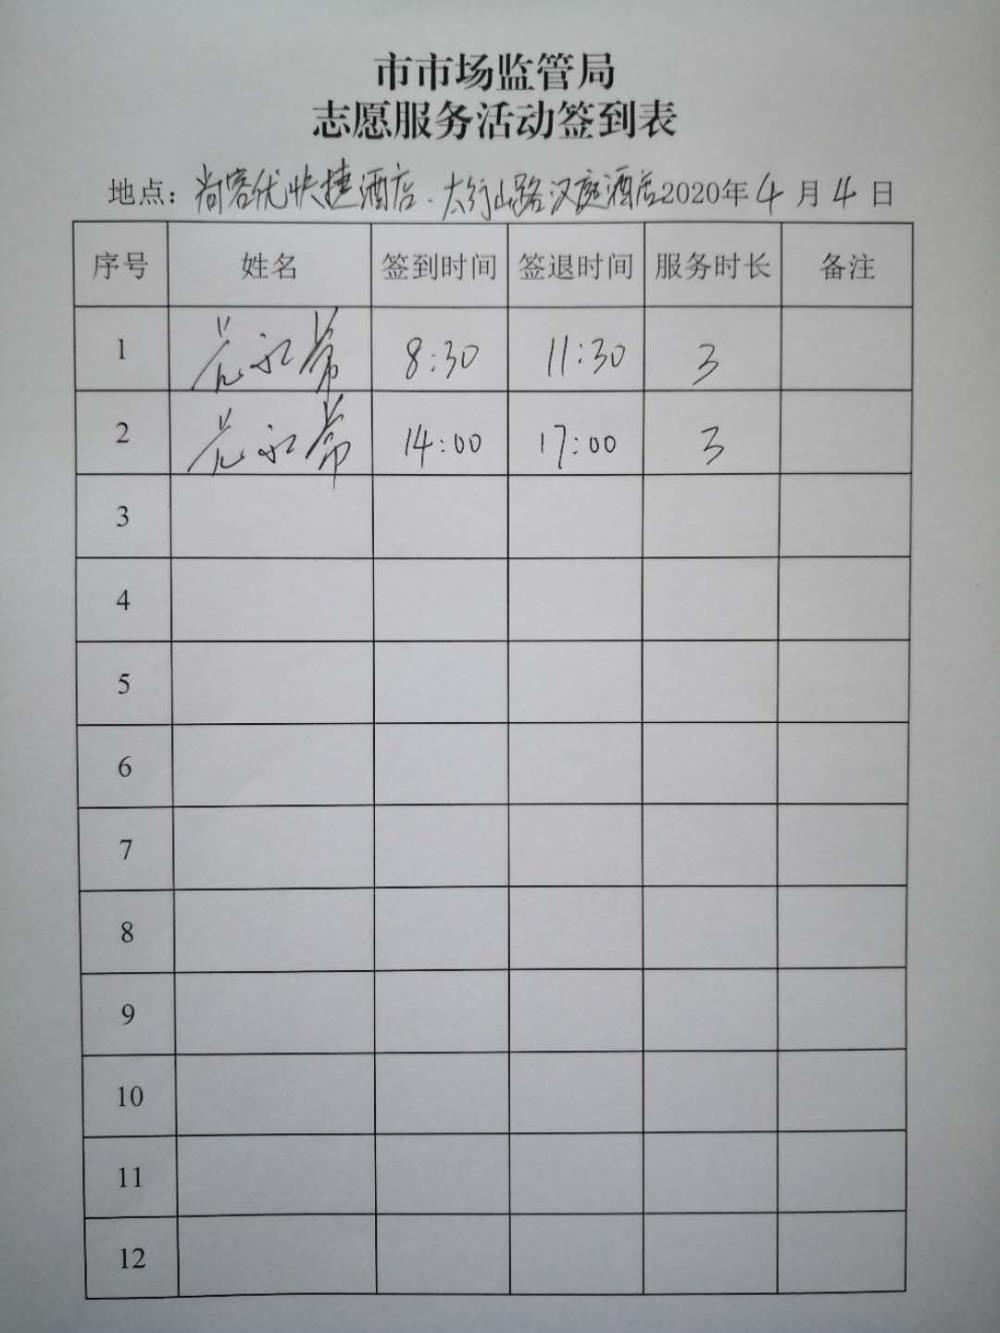 市市场监管局
志愿服务活动签到表
地点：尚客优快捷酒店.太行山路汉庭酒店2020年4月4日
序号 姓名 签到时间 签退时间 服务时长 备注
1 8:30 11:30 3
2 14:00 17:00 3
3
4
5
6
7
8
9
10
11
12